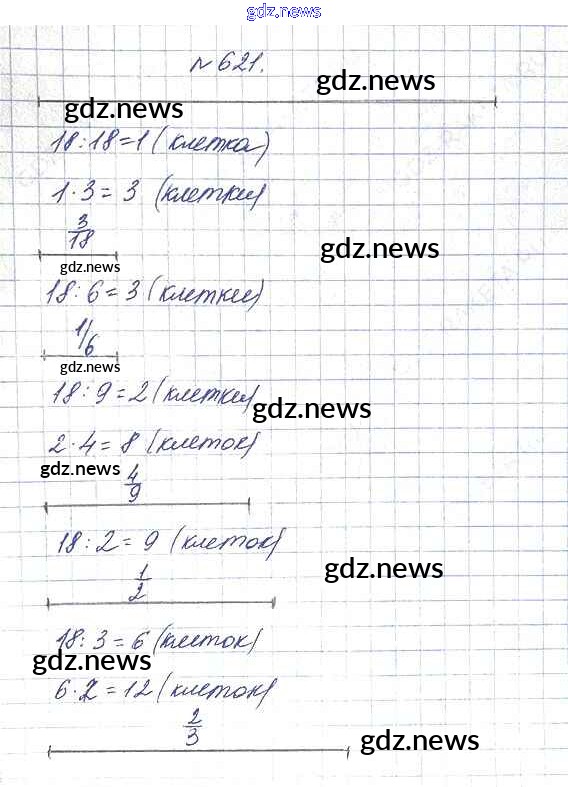 gdz.news
№ 621.
gdz.news
gdz.news
18:18=1 (клетка)
1·3=3 (клетки)
3/18
gdz.news
gdz.news
18:6=3 (клетки)
1/6
gdz.news
18:9=2 (клетки)
gdz.news
2·4=8 (клеток)
gdz.news
4/9
18:2=9 (клеток)
gdz.news
1/2
18:3=6 (клеток)
gdz.news
6·2=12 (клеток)
2/3
gdz.news